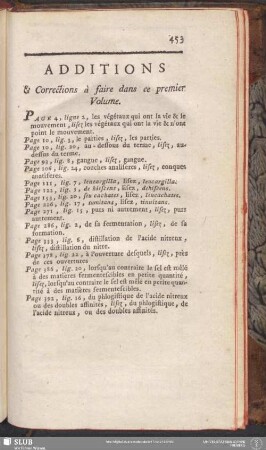 453
ADDITIONS
& Corrections à faire dans ce premier
Volume.
PAGE 4, ligne 2, les végétaux qui ont la vie & le
mouvement, lisez les végétaux qui ont la vie & n'ont
point le mouvement.
Page 10, lig. 5, le parties, lisez, les parties.
Page 10, lig. 20, au-dessous du terme, lisez, au-
dessus du terme.
Page 95, lig. 8, gangue, lisez, gangue.
Page 106, lig. 24, roches amilifères, lisez, conques
anatifères.
Page 111, lig. 7,
Page 133, lig. 8, de hispiens, lisez, d'hispiens.
Page 155, lig. 20, lisez,
Page 226, lig. 17, lisez,
Page 271, lig. 15, purs ni autrement, lisez, purs
autrement.
Page 286, lig. 2, de sa fermentation, lisez, de sa
formation.
Page 353, lig. 6, distillation de l'acide nitreux,
lisez, distillation du nitre.
Page 378, lig. 22, à l'ouverture desquels, lisez, près
de ces ouvertures
Page 388, lig. 20, lorsqu'au contraire le sel est rollé
à des matières fermentescibles en petite quantité,
lisez, lorsqu'au contraire le sel est mêlé en petite quan-
tité à des matières fermentescibles.
Page 392, lig. 16, du phlogistique de l'acide nitreux
ou des doubles affinités, lisez, du phlogistique, de
l'acide nitreux, ou des doubles affinités.
SLUB